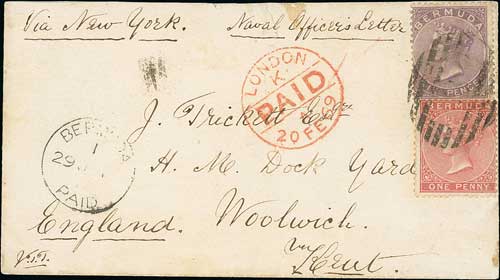 Via New York. Naval Officer's Letter
BERMUDA
PENCE
LONDON
K
PAID
20 FE 69
BERMUDA
ONE PENNY
J. Trickett Esqre
BERMUDA
1
29
PAID
H. M. Dock Yard
Woolwich.
England.
Kent.